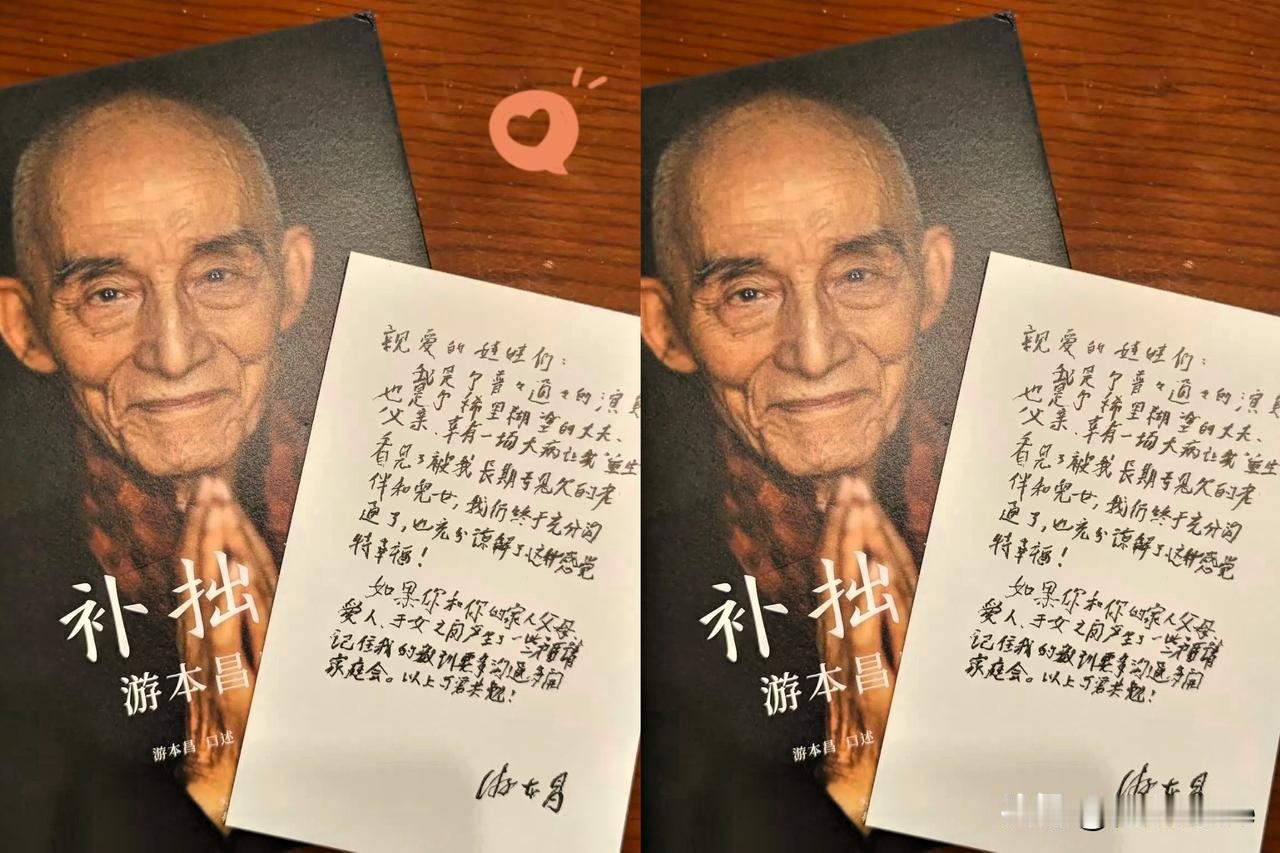 补拙
游本昌
游本昌 口述
亲爱的娃娃们：
我是个普々通々的演员
也是个稀里糊塗的丈夫、
父亲、幸有一场大病让我"重生
看见了被我长期亏欠的老
伴和兒女，我们终于充分沟
通了，也充分谅解了这种感觉
特幸福！
如果你和你的家人父母、
愛人、子女之间产生了一些矛盾请
记住我的教训要多沟通多开
家庭会。以上与君共勉！
游本昌
补拙
游本昌
游本昌 口述
亲爱的娃娃们：
我是个普々通々的演员
也是个稀里糊塗的丈夫、
父亲、幸有一场大病让我"重生
看见了被我长期亏欠的老
伴和兒女，我们终于充分沟
通了，也充分谅解了这种感觉
特幸福！
如果你和你的家人父母、
愛人、子女之间产生了一些矛盾请
记住我的教训要多沟通多开
家庭会。以上与君共勉！
游本昌